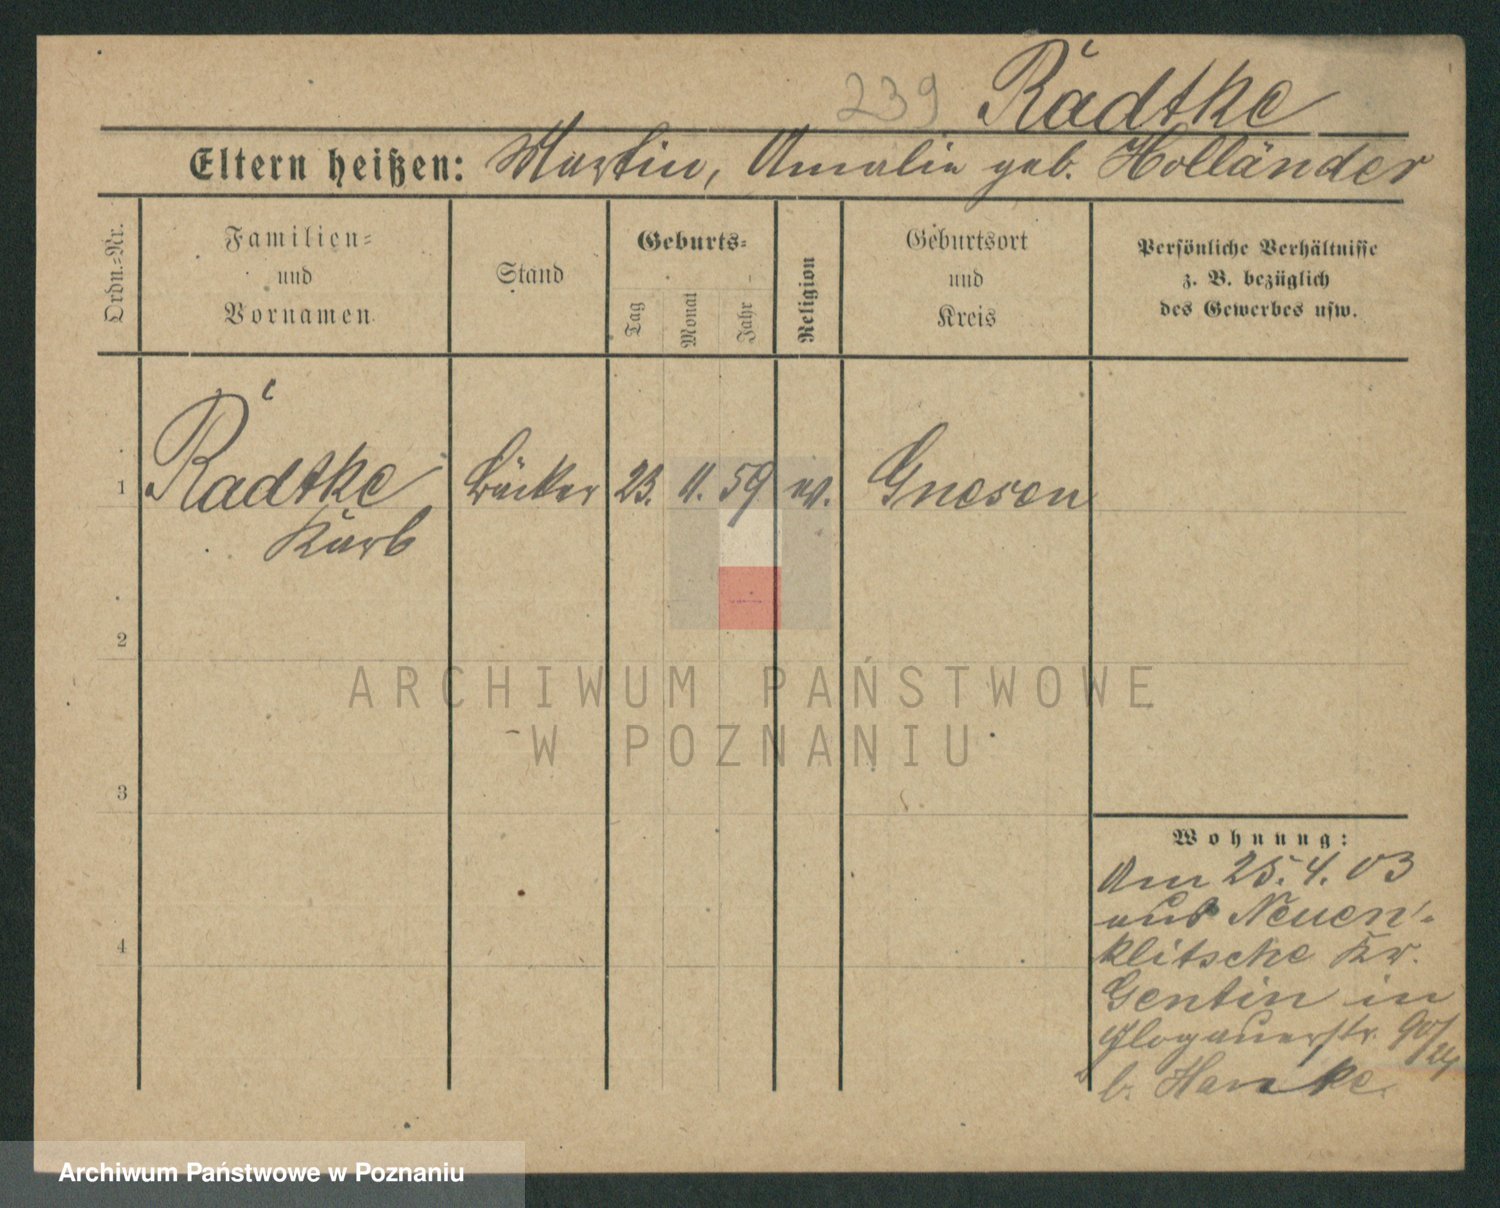 239 Rädtke
Eltern heißen: Martin, Amalie geb. Holländer
Ordn.-Nr.
Familien-
und
Vornamen
Stand
Geburts-
Tag
Monat
Jahr
Religion
Geburtsort
und
Kreis
Persönliche Verhältnisse
z. B. bezüglich
des Gewerbes usw.
1 Rädtke Bäcker 23. 11. 59 ev. Gnesen
2
3
4
Wohnung:
Am 25. 4. 03
aus Neuen-
klitsche Kr.
Gentin in
Glogauerstr. 90/24
b. Hanke.
ARCHIWUM PAŃSTWOWE
W POZNANIU
Archiwum Państwowe w Poznaniu